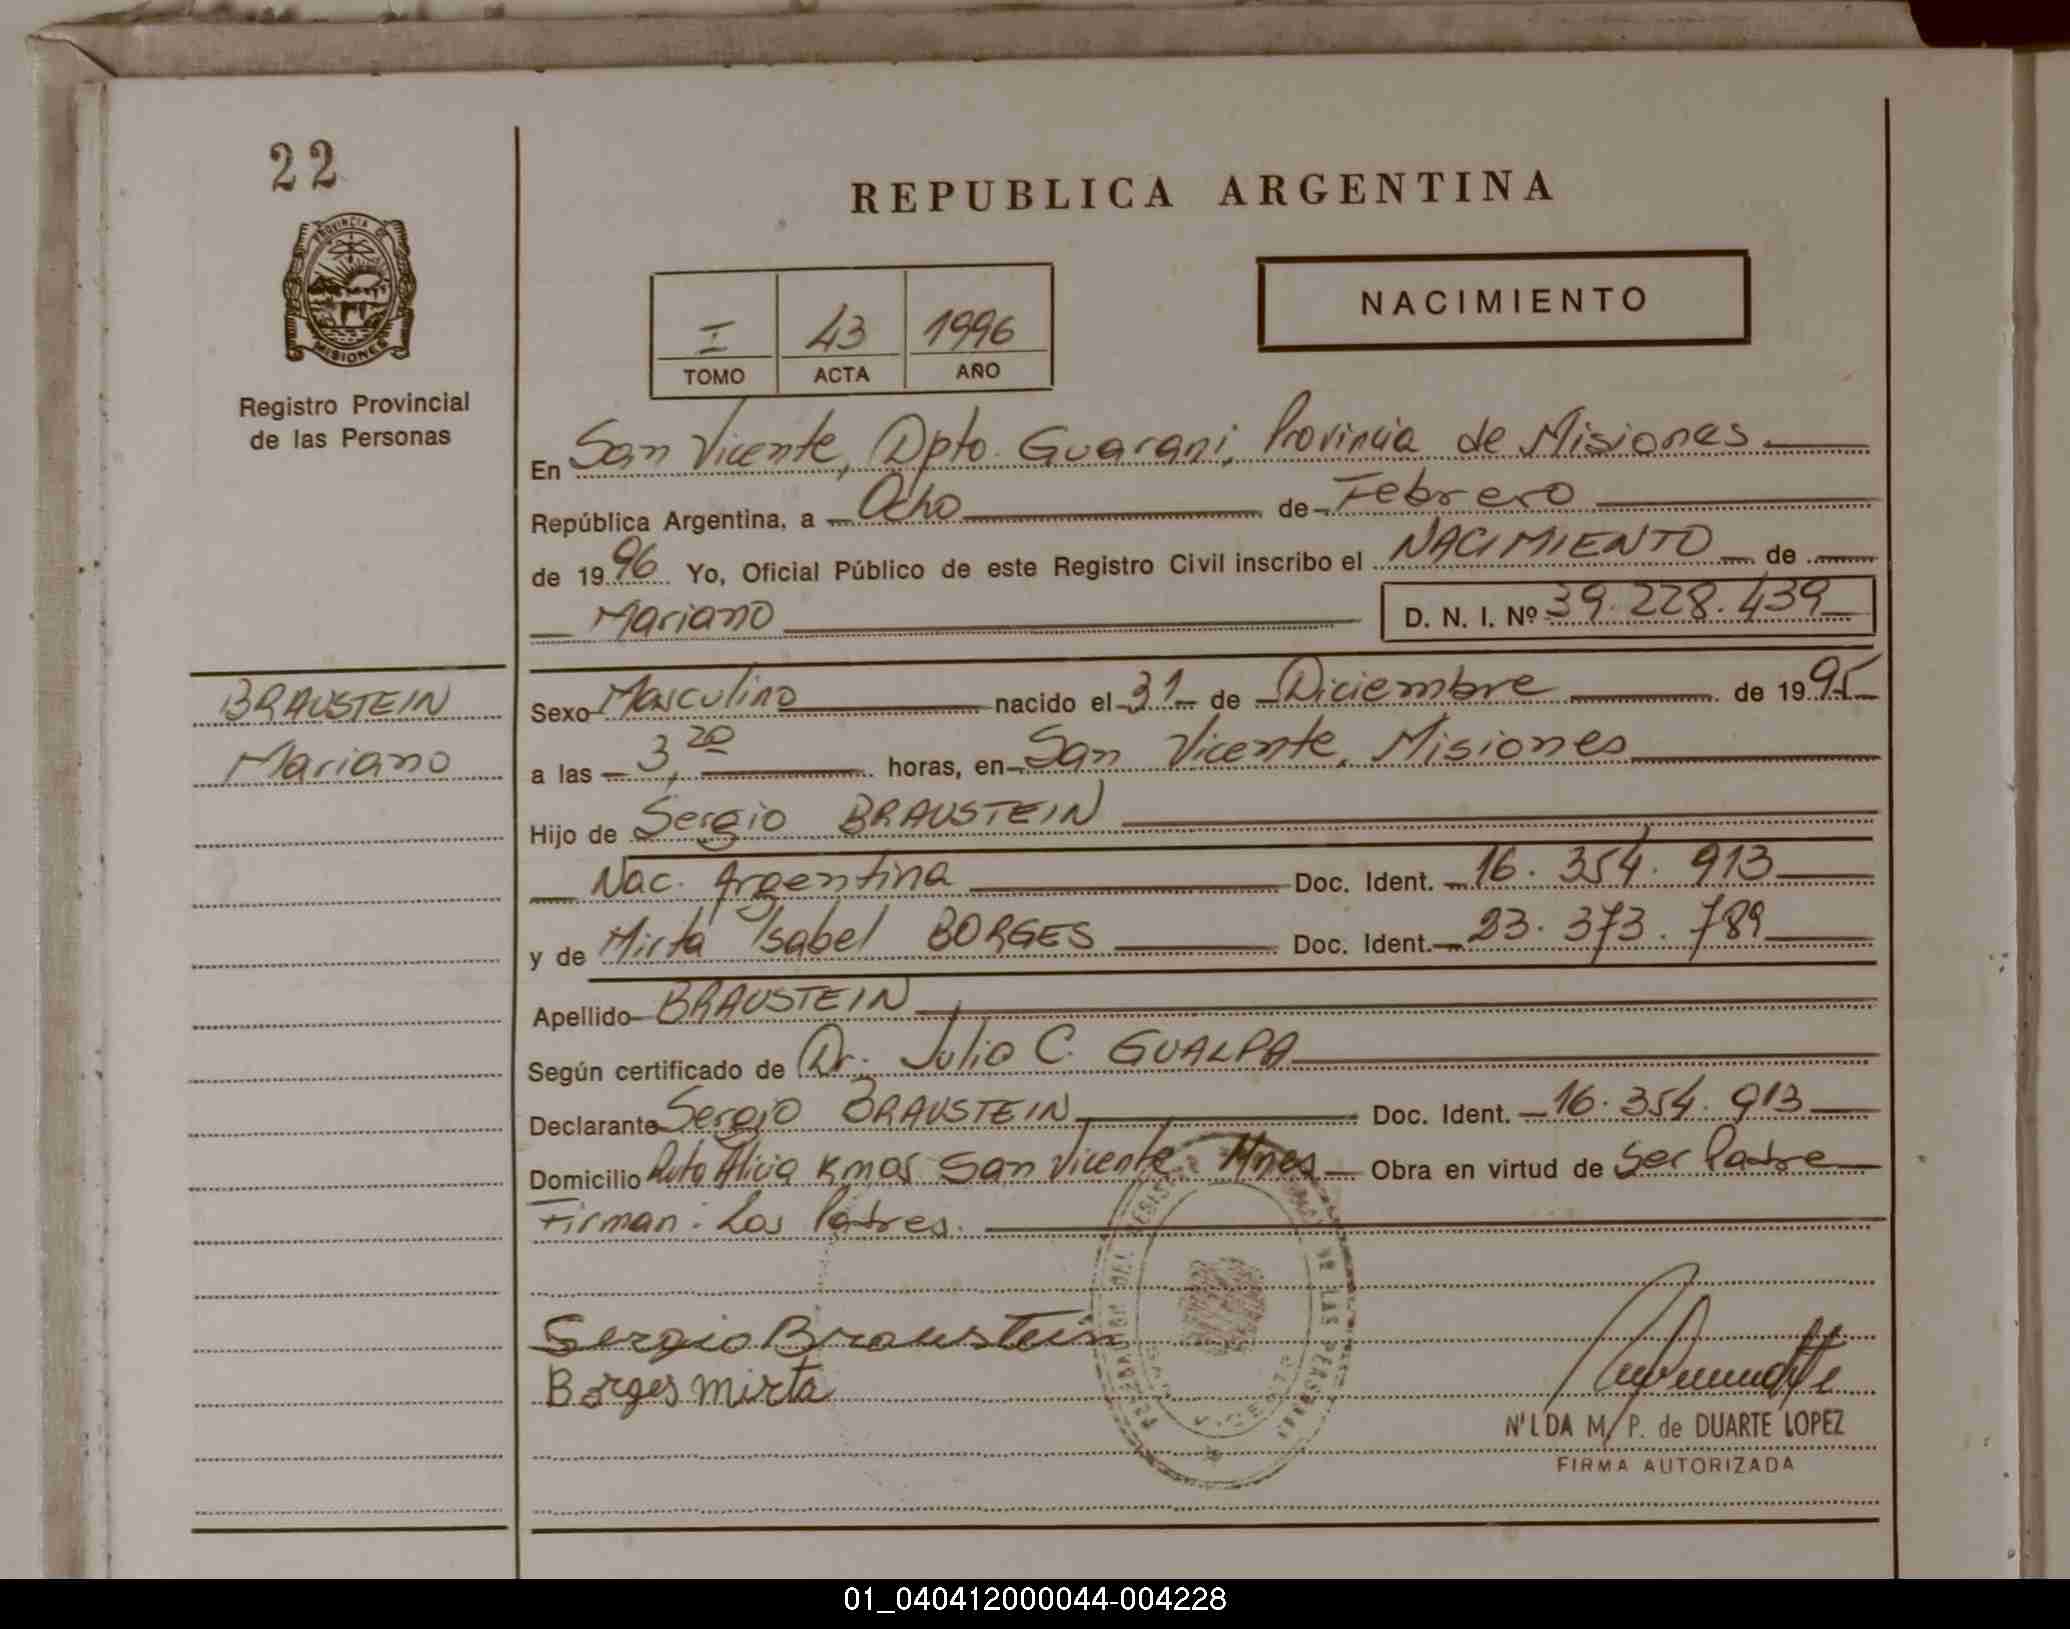 22
REPUBLICA ARGENTINA
PROVINCIA DE
MISIONES
NACIMIENTO
I 43 1996
TOMO ACTA AÑO
Registro Provincial
de las Personas
En San Vicente, Dpto. Guarani, Provincia de Misiones
República Argentina, a Ocho de Febrero
de 1996 Yo, Oficial Público de este Registro Civil inscribo el NACIMIENTO de
Mariano D. N. I. Nº 39.228.439
BRAUSTEIN
Mariano
Sexo Masculino nacido el 31 de Diciembre de 1995
a las 3,20 horas, en San Vicente, Misiones
Hijo de Sergio BRAUSTEIN
Nac. Argentina Doc. Ident. 16.354.913
y de Mirta Isabel BORGES Doc. Ident. 23.373.789
Apellido BRAUSTEIN
Según certificado de Dr. Julio C. GUALPA
Declarante Sergio BRAUSTEIN Doc. Ident. 16.354.913
Domicilio Ruta Alicia San Vicente Mnes Obra en virtud de Ser Padre
Firman: Los Padres.
Sergio Braustein
Borges Mirta
NILDA M. P. de DUARTE LOPEZ
FIRMA AUTORIZADA
01_040412000044-004228